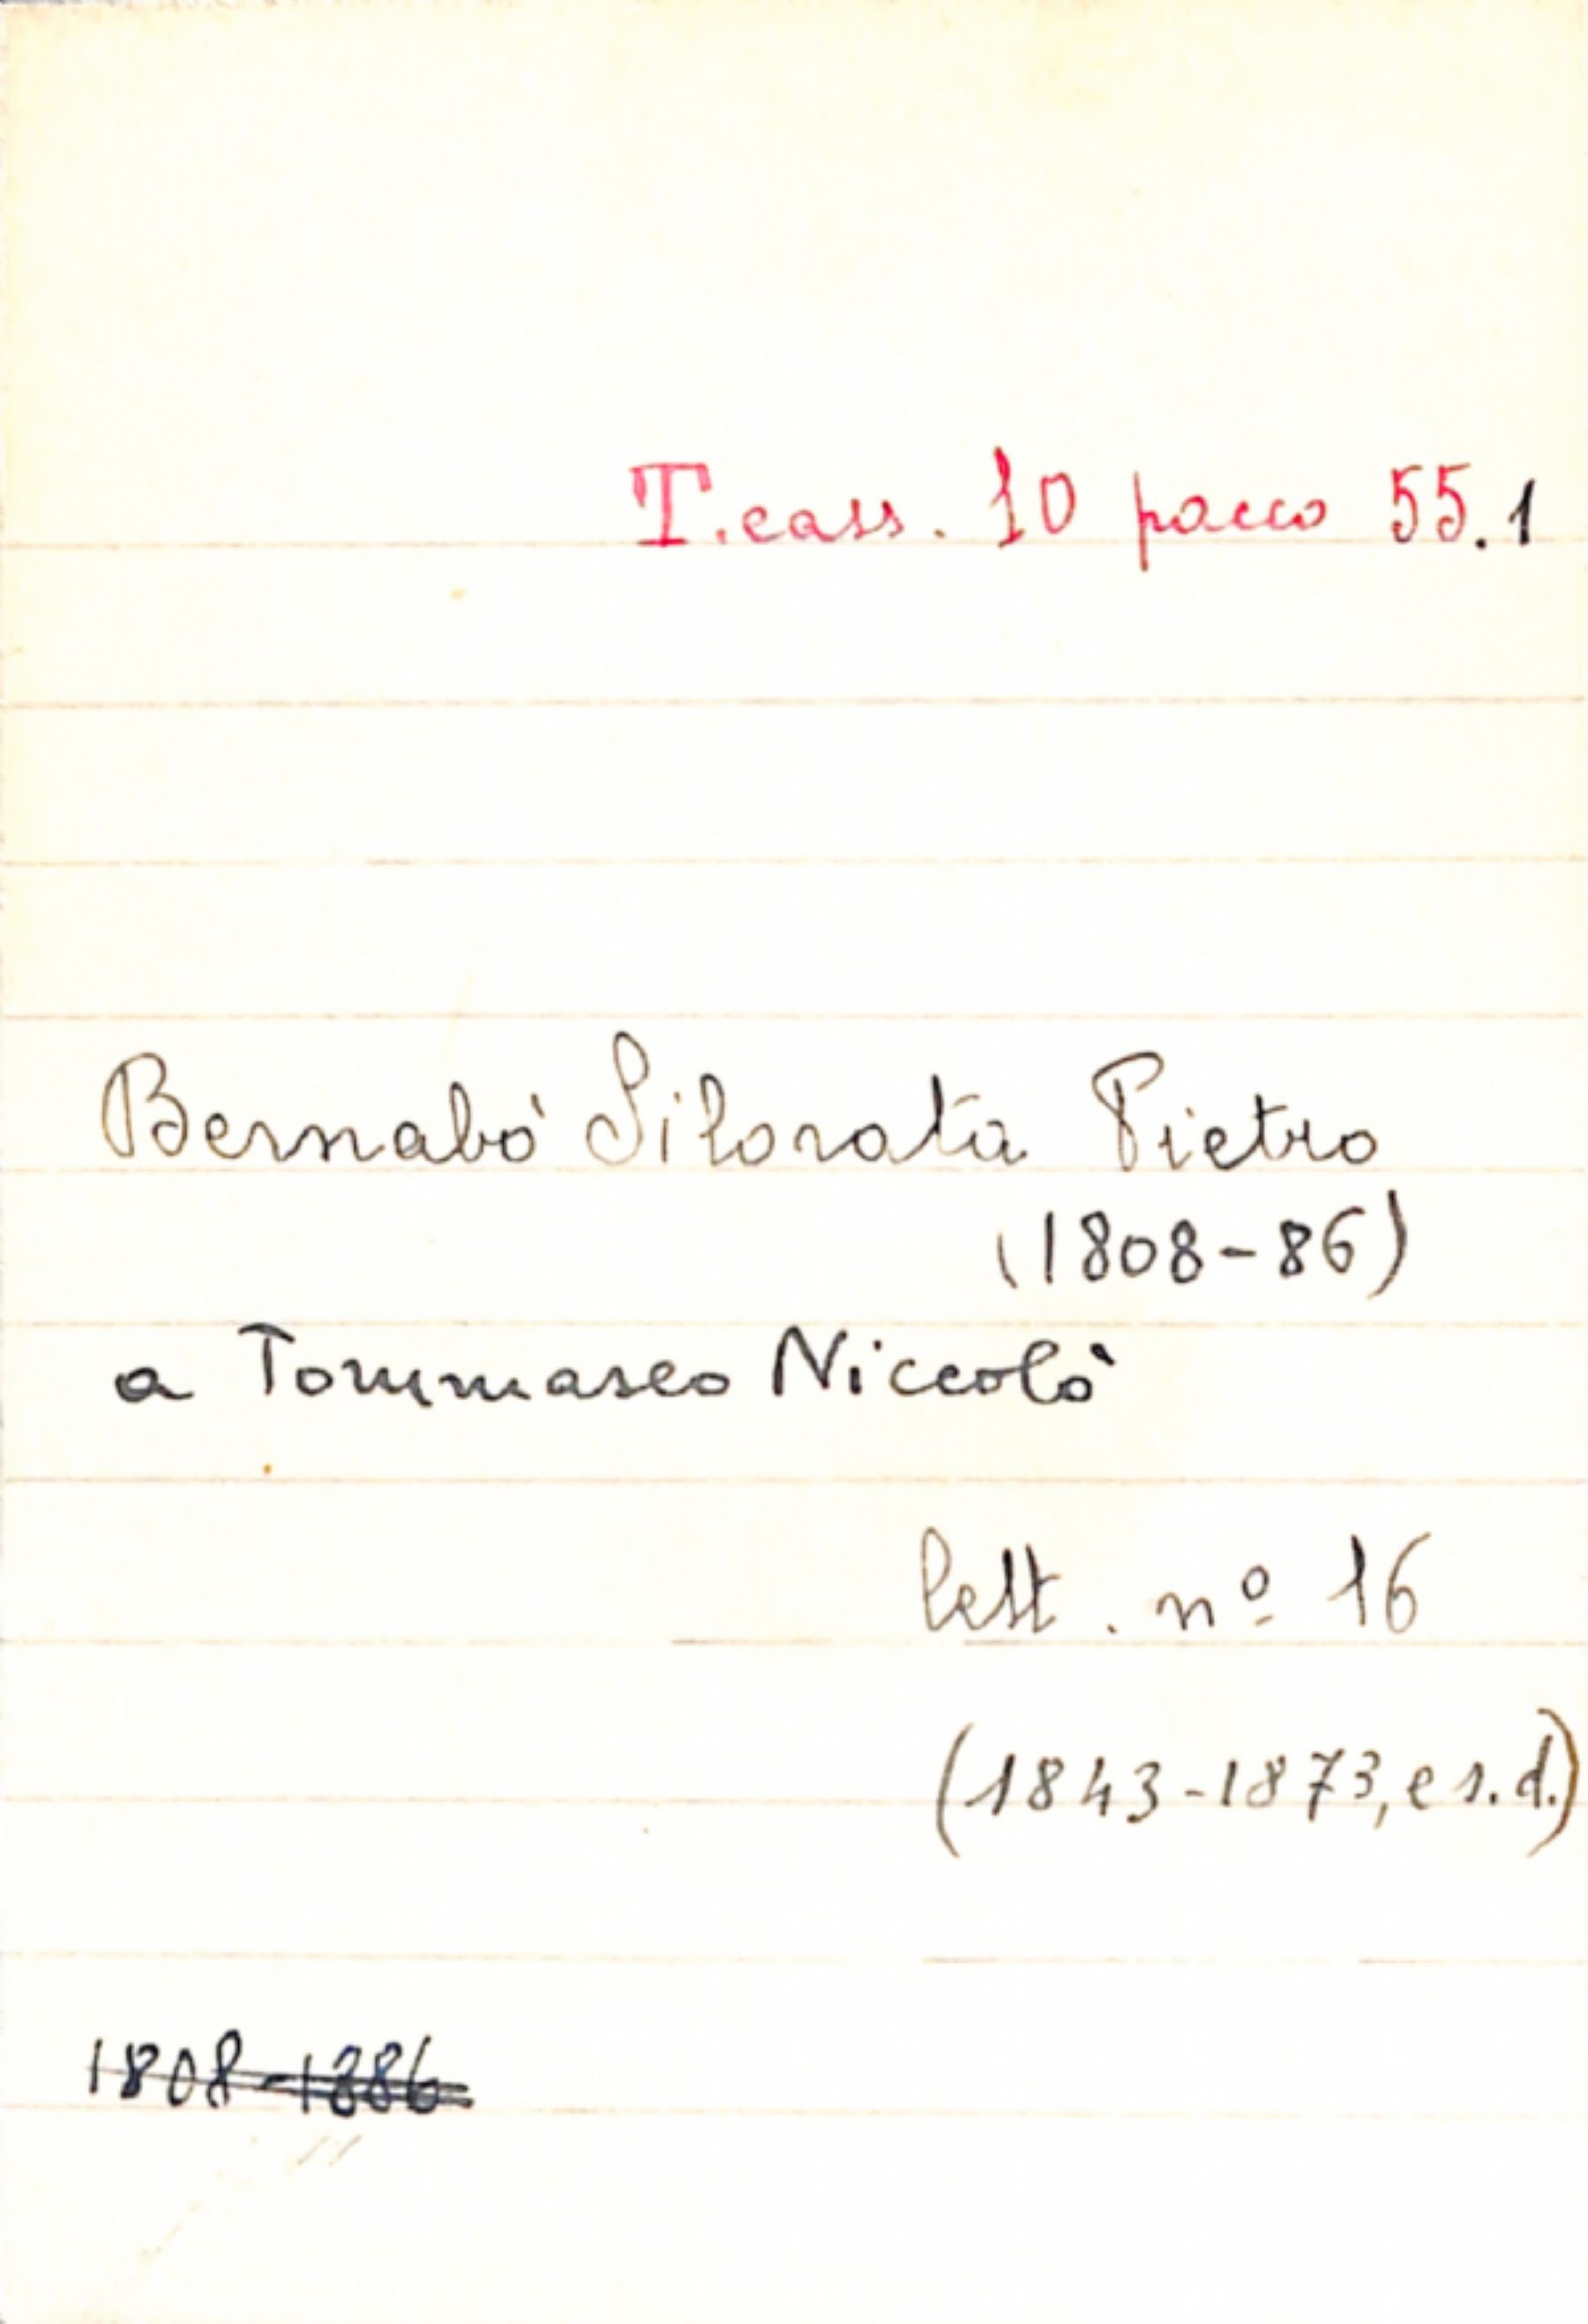 T. cass. 10 pacco 55.1
Bernabò Silorata Pietro
(1808-86)
a Tommaseo Niccolò
lett. nº 16
(1843-1873, e s.d.)
1808-1886